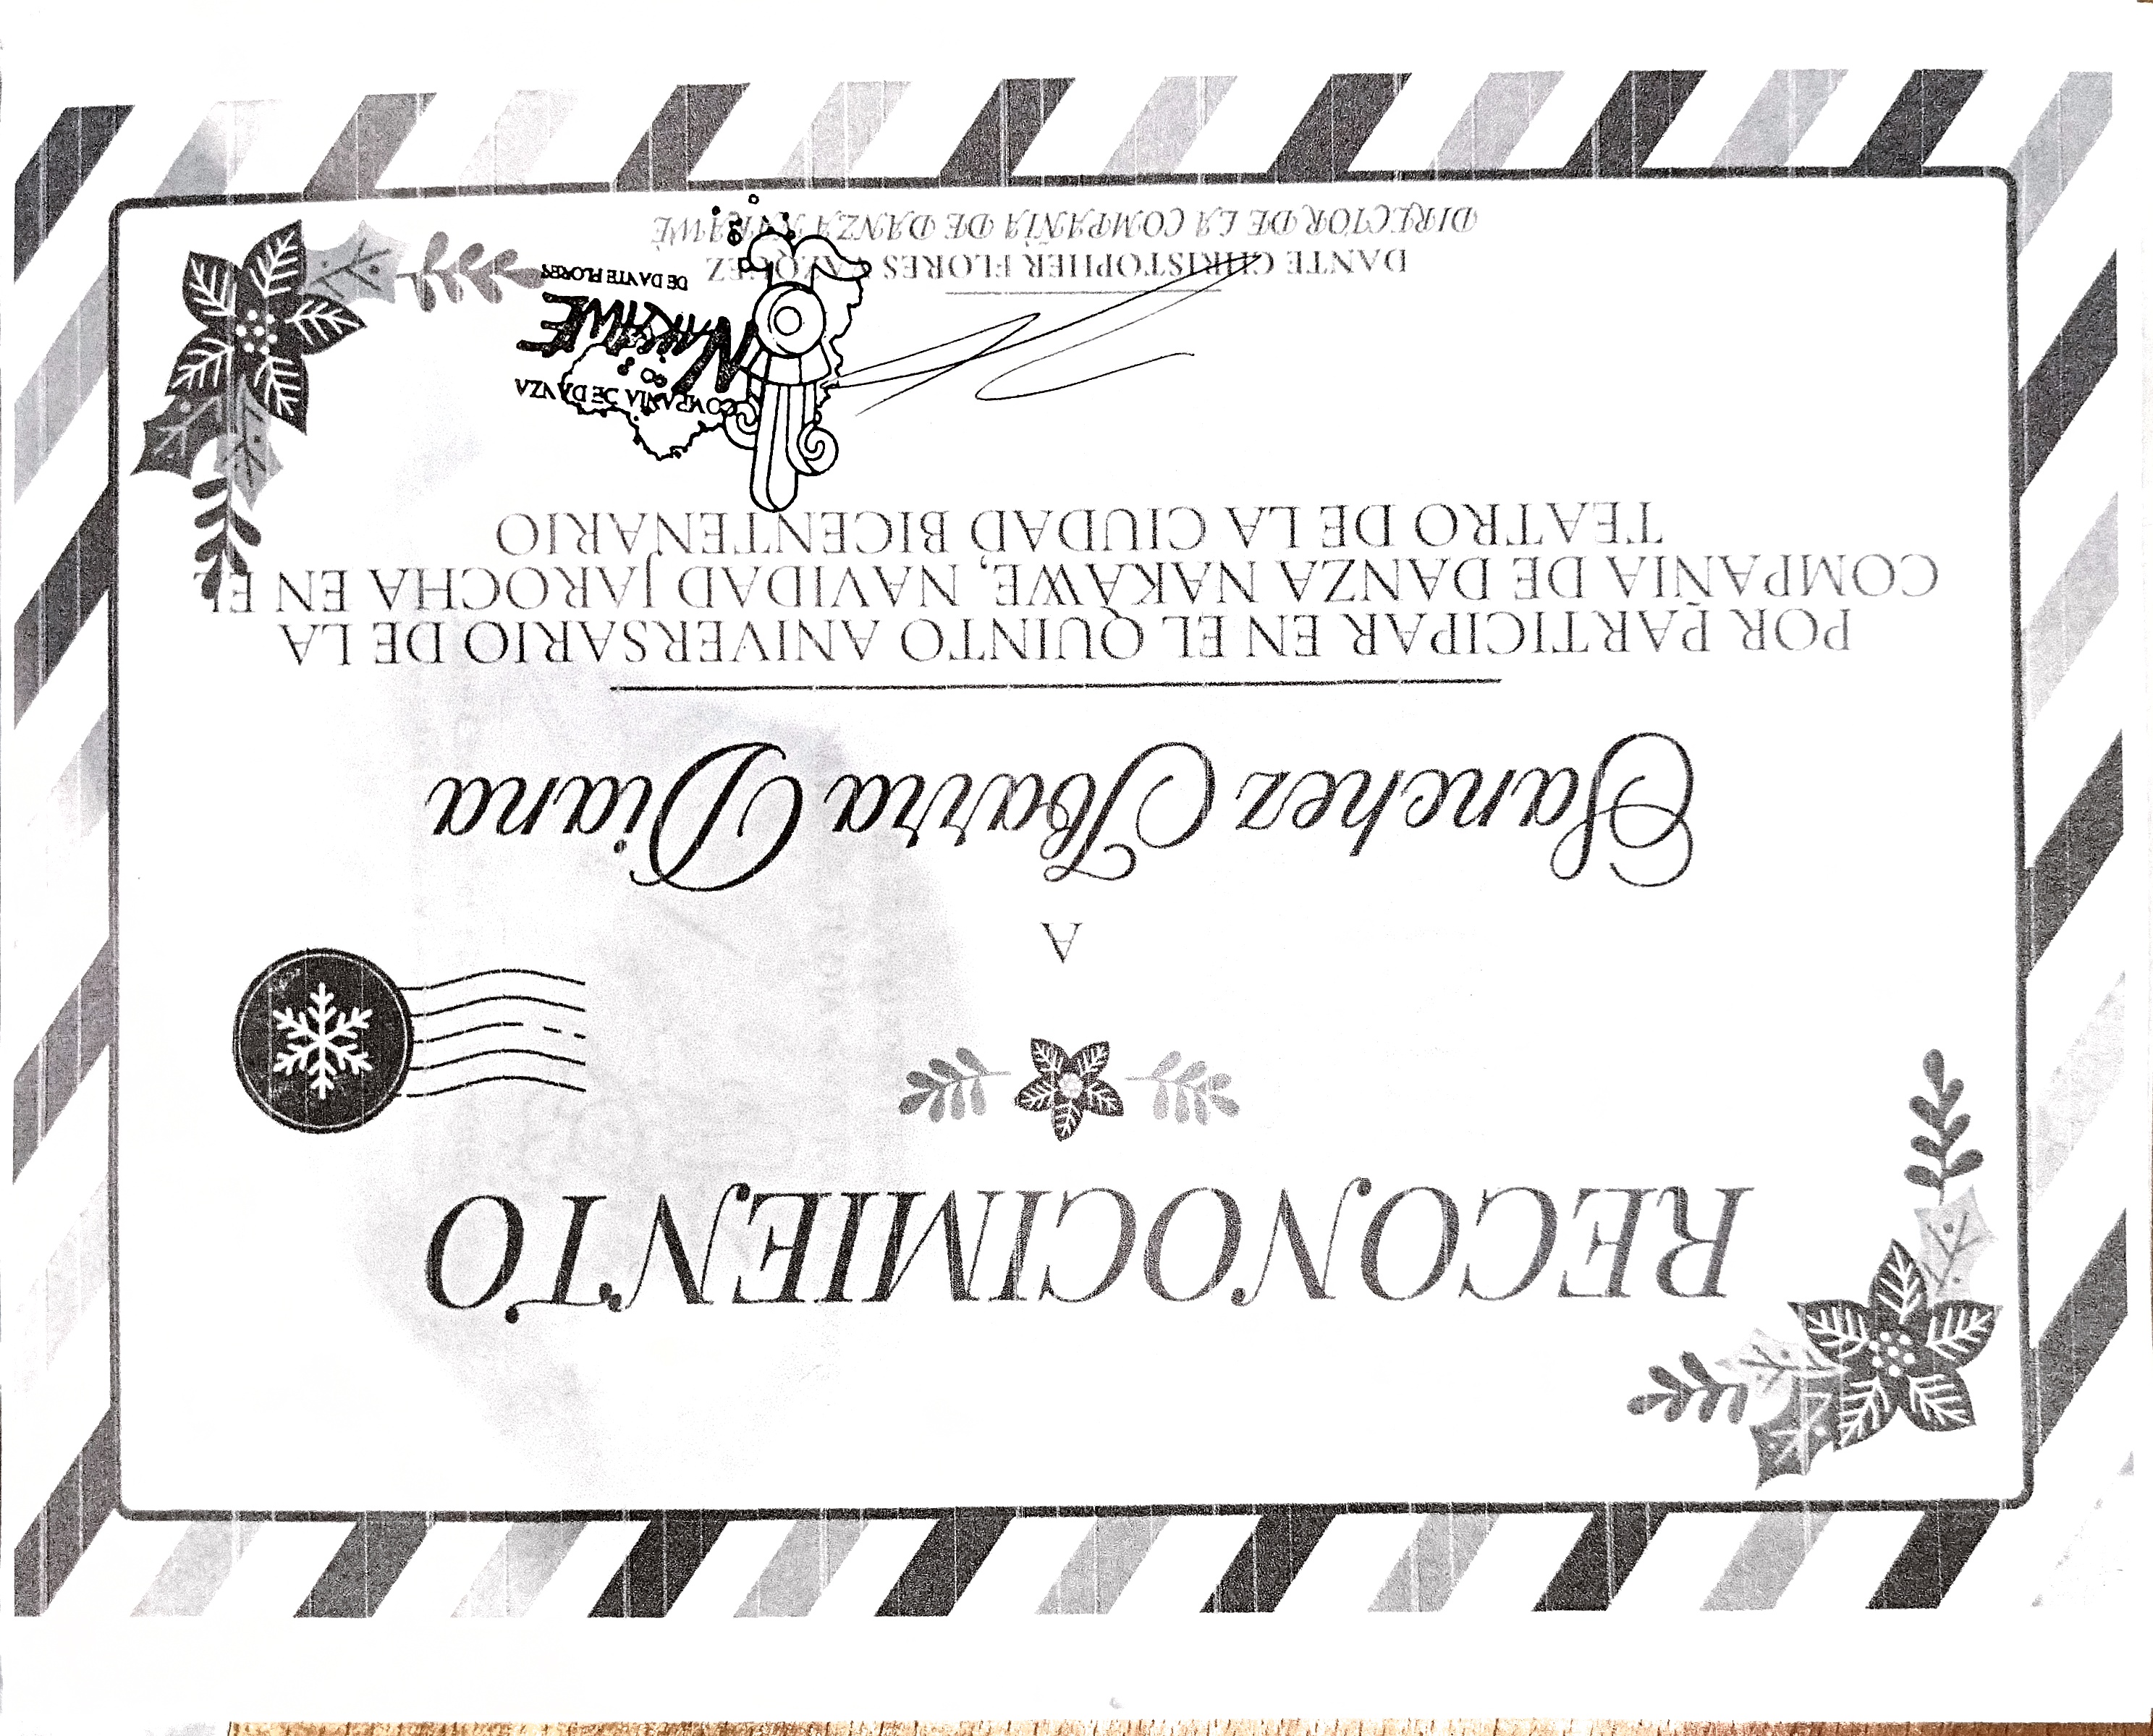 RECONOCIMIENTO
A
Sanchez Ibarra Diana
POR PARTICIPAR EN EL QUINTO ANIVERSARIO DE LA
COMPAÑIA DE DANZA NAKAWE, NAVIDAD JAROCHA EN EL
TEATRO DE LA CIUDAD BICENTENARIO
COMPAÑIA DE DANZA
NAKAWE
DE DANTE FLORES
DANTE CHRISTOPHER FLORES VAZQUEZ
DIRECTOR DE LA COMPAÑIA DE DANZA NAKAWÈ